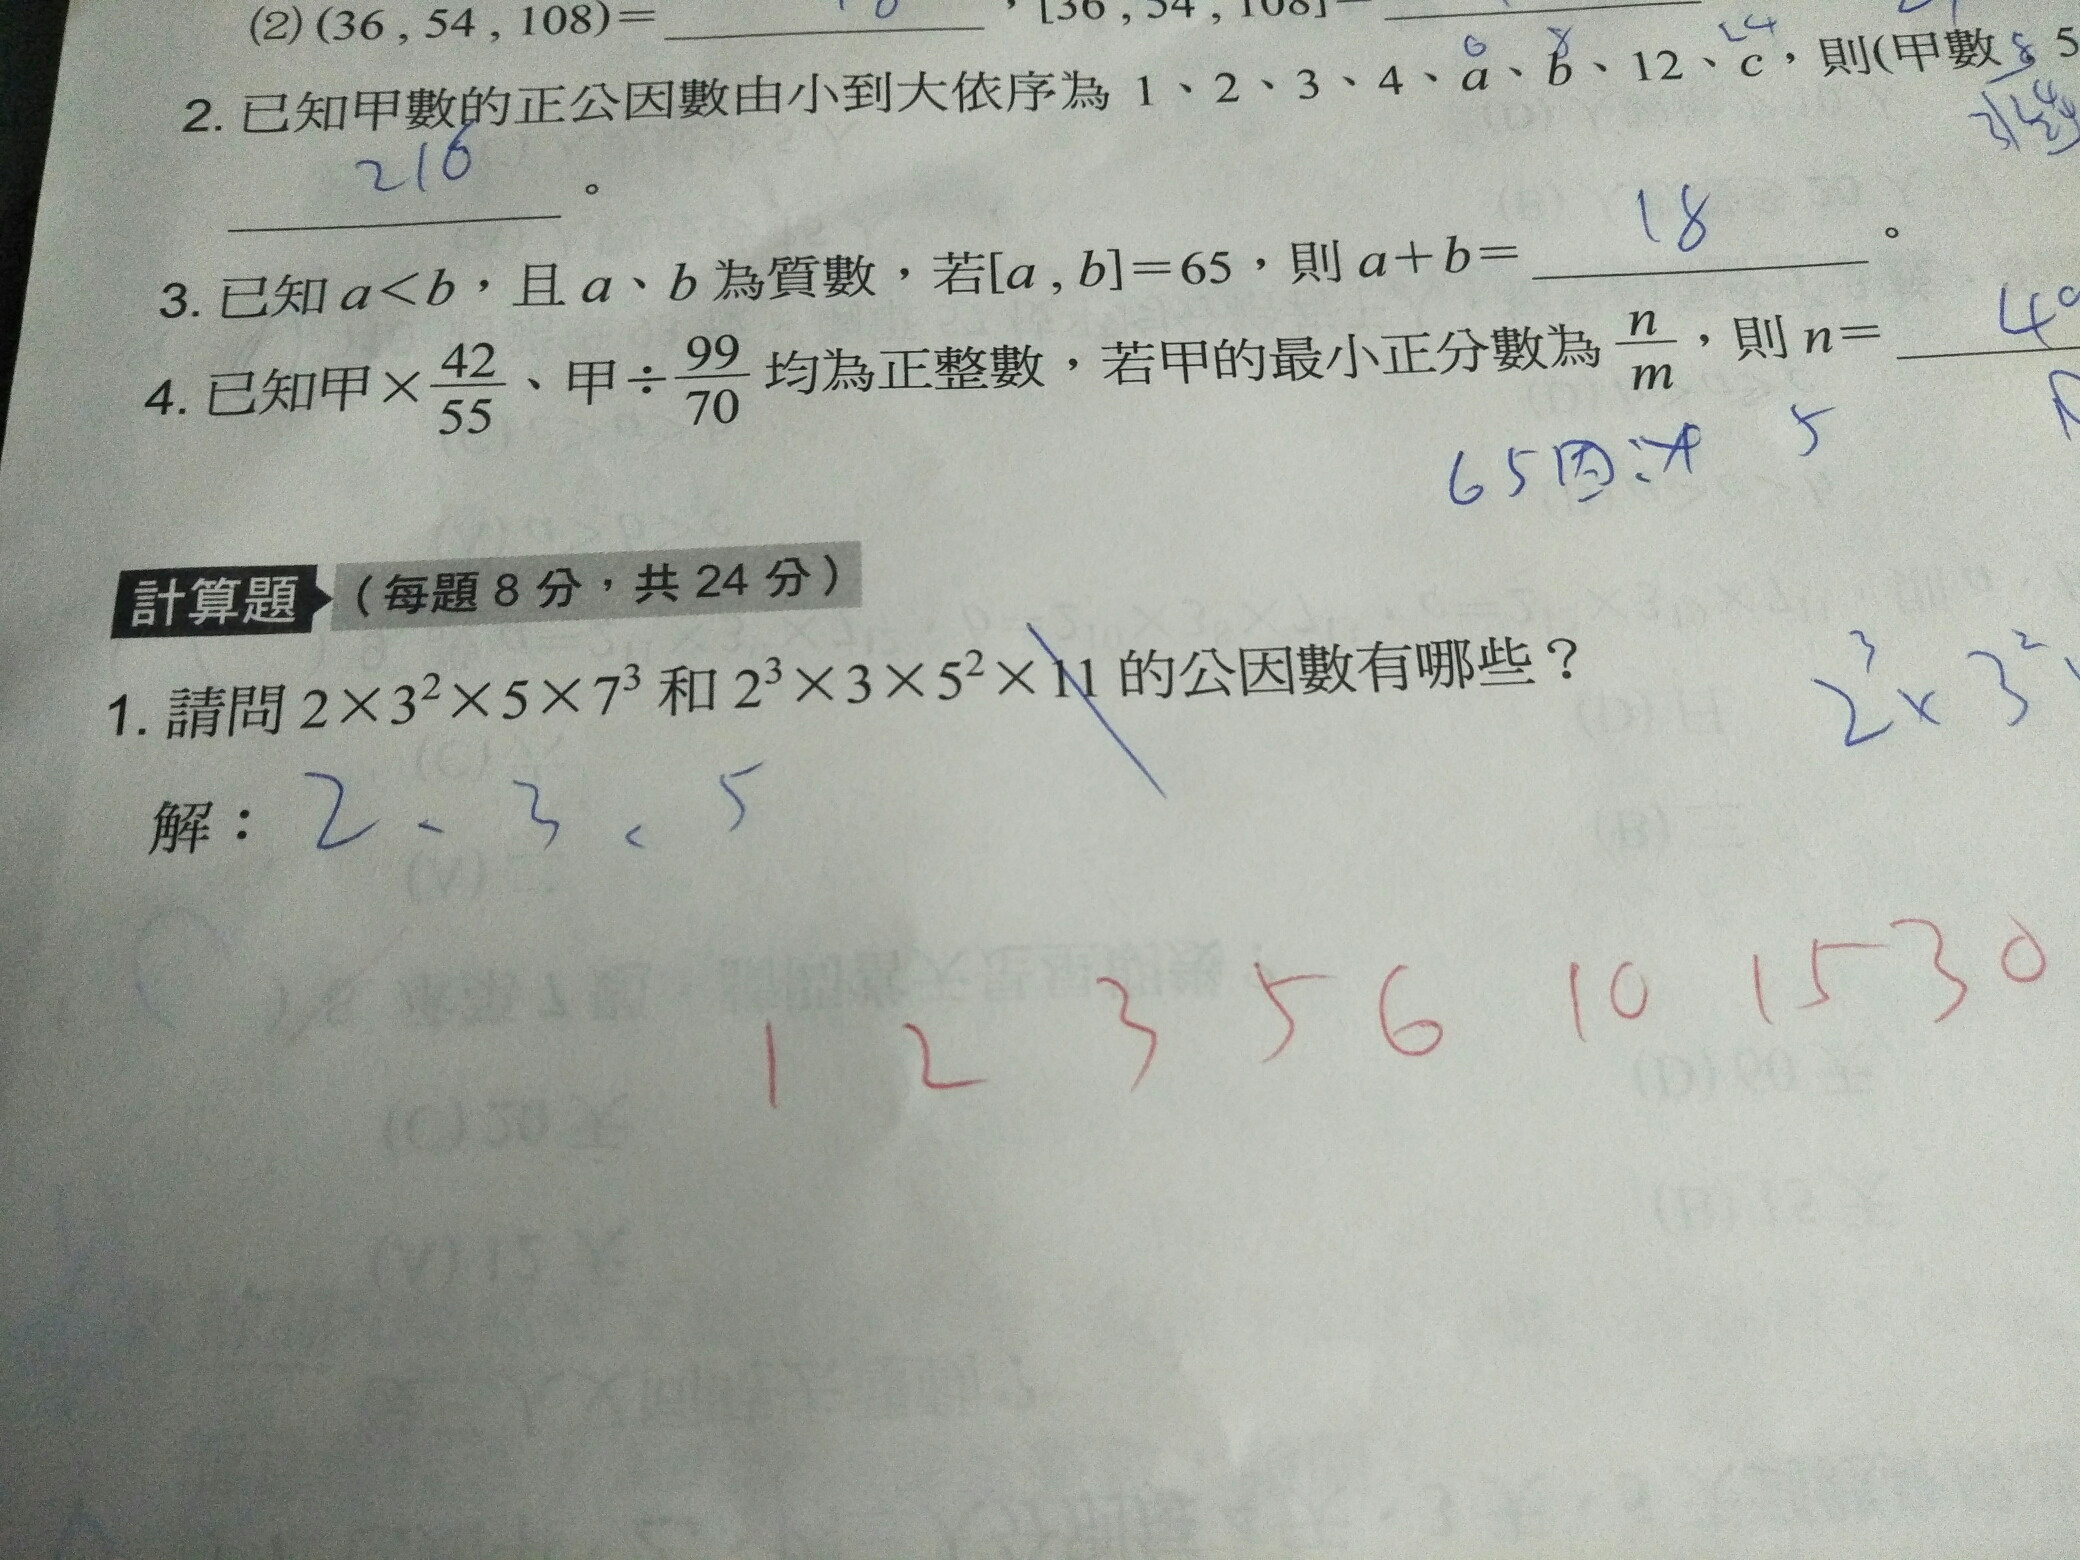 (2) (36 , 54 , 108)＝ ，[36 , 54 , 108]＝
6 8 24
2. 已知甲數的正公因數由小到大依序為 1、2、3、4、a、b、12、c，則(甲數 5
216 。
3. 已知 a＜b，且 a、b 為質數，若[a , b]＝65，則 a＋b＝ 18 。
4. 已知甲×42/55、甲÷99/70 均為正整數，若甲的最小正分數為 n/m，則 n＝ 49
65因 5
計算題（每題 8 分，共 24 分）
1. 請問 2×3²×5×7³ 和 2³×3×5²×11 的公因數有哪些？
2³×3²
解：2、3、5
1 2 3 5 6 10 15 30